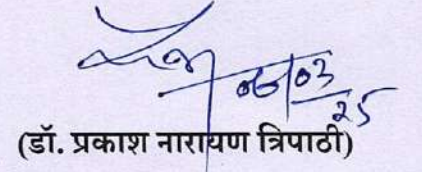 06/03/25
(डॉ. प्रकाश नारायण त्रिपाठी)